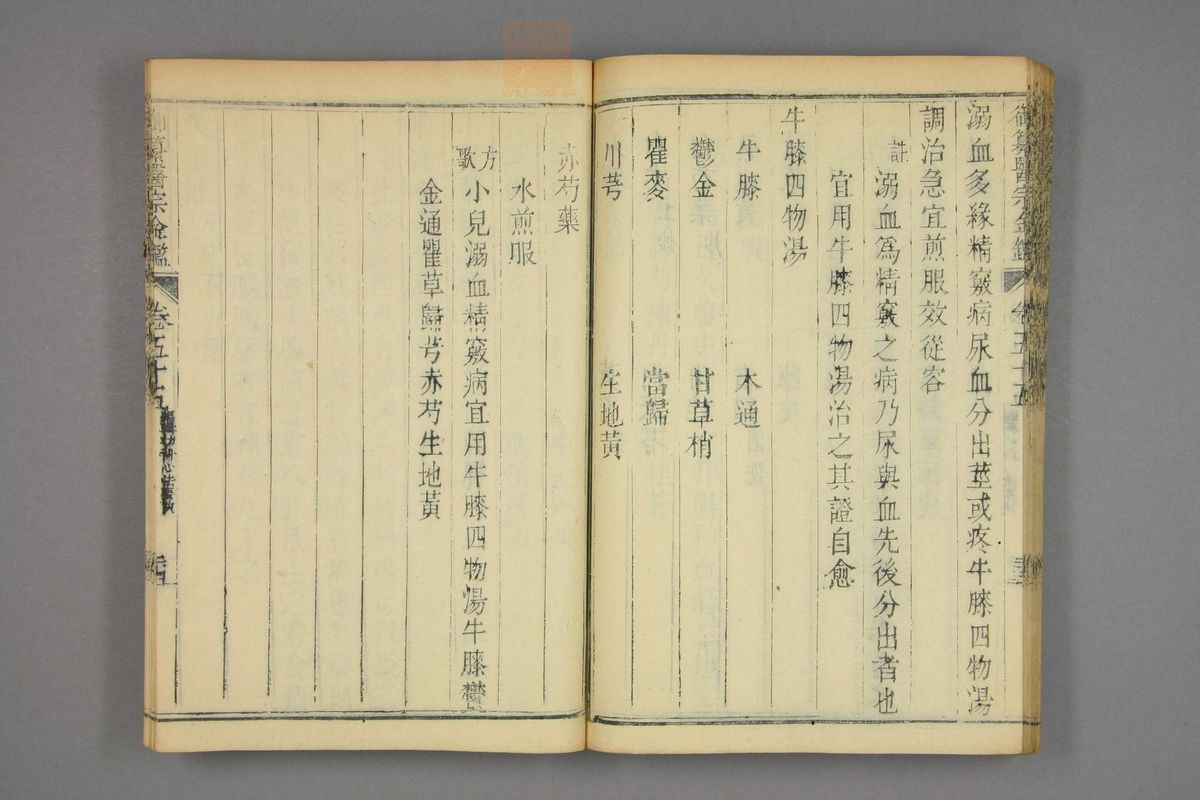 溺血多緣精竅病尿血分出莖或疼牛膝四物湯
調治急宜煎服效從容
註溺血為精竅之病乃尿與血先後分出者也
宜用牛膝四物湯治之其證自愈
牛膝四物湯
牛膝 木通
鬱金 甘草梢
瞿麥 當歸
川芎 生地黃
赤芍藥
水煎服
方歌 小兒溺血精竅病宜用牛膝四物湯牛膝鬱
金通瞿草歸芎赤芍生地黃
御纂醫宗金鑑 卷五十五